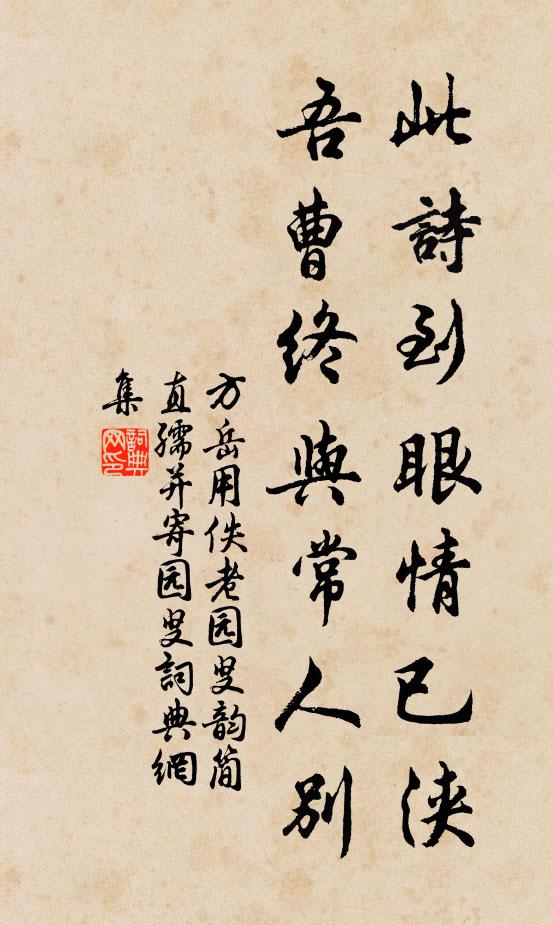 此詩到眼情已浹
吾曹終與常人別
方岳用佚老园叟韵简
直孺并寄园叟詞典網
集
詞典
网印